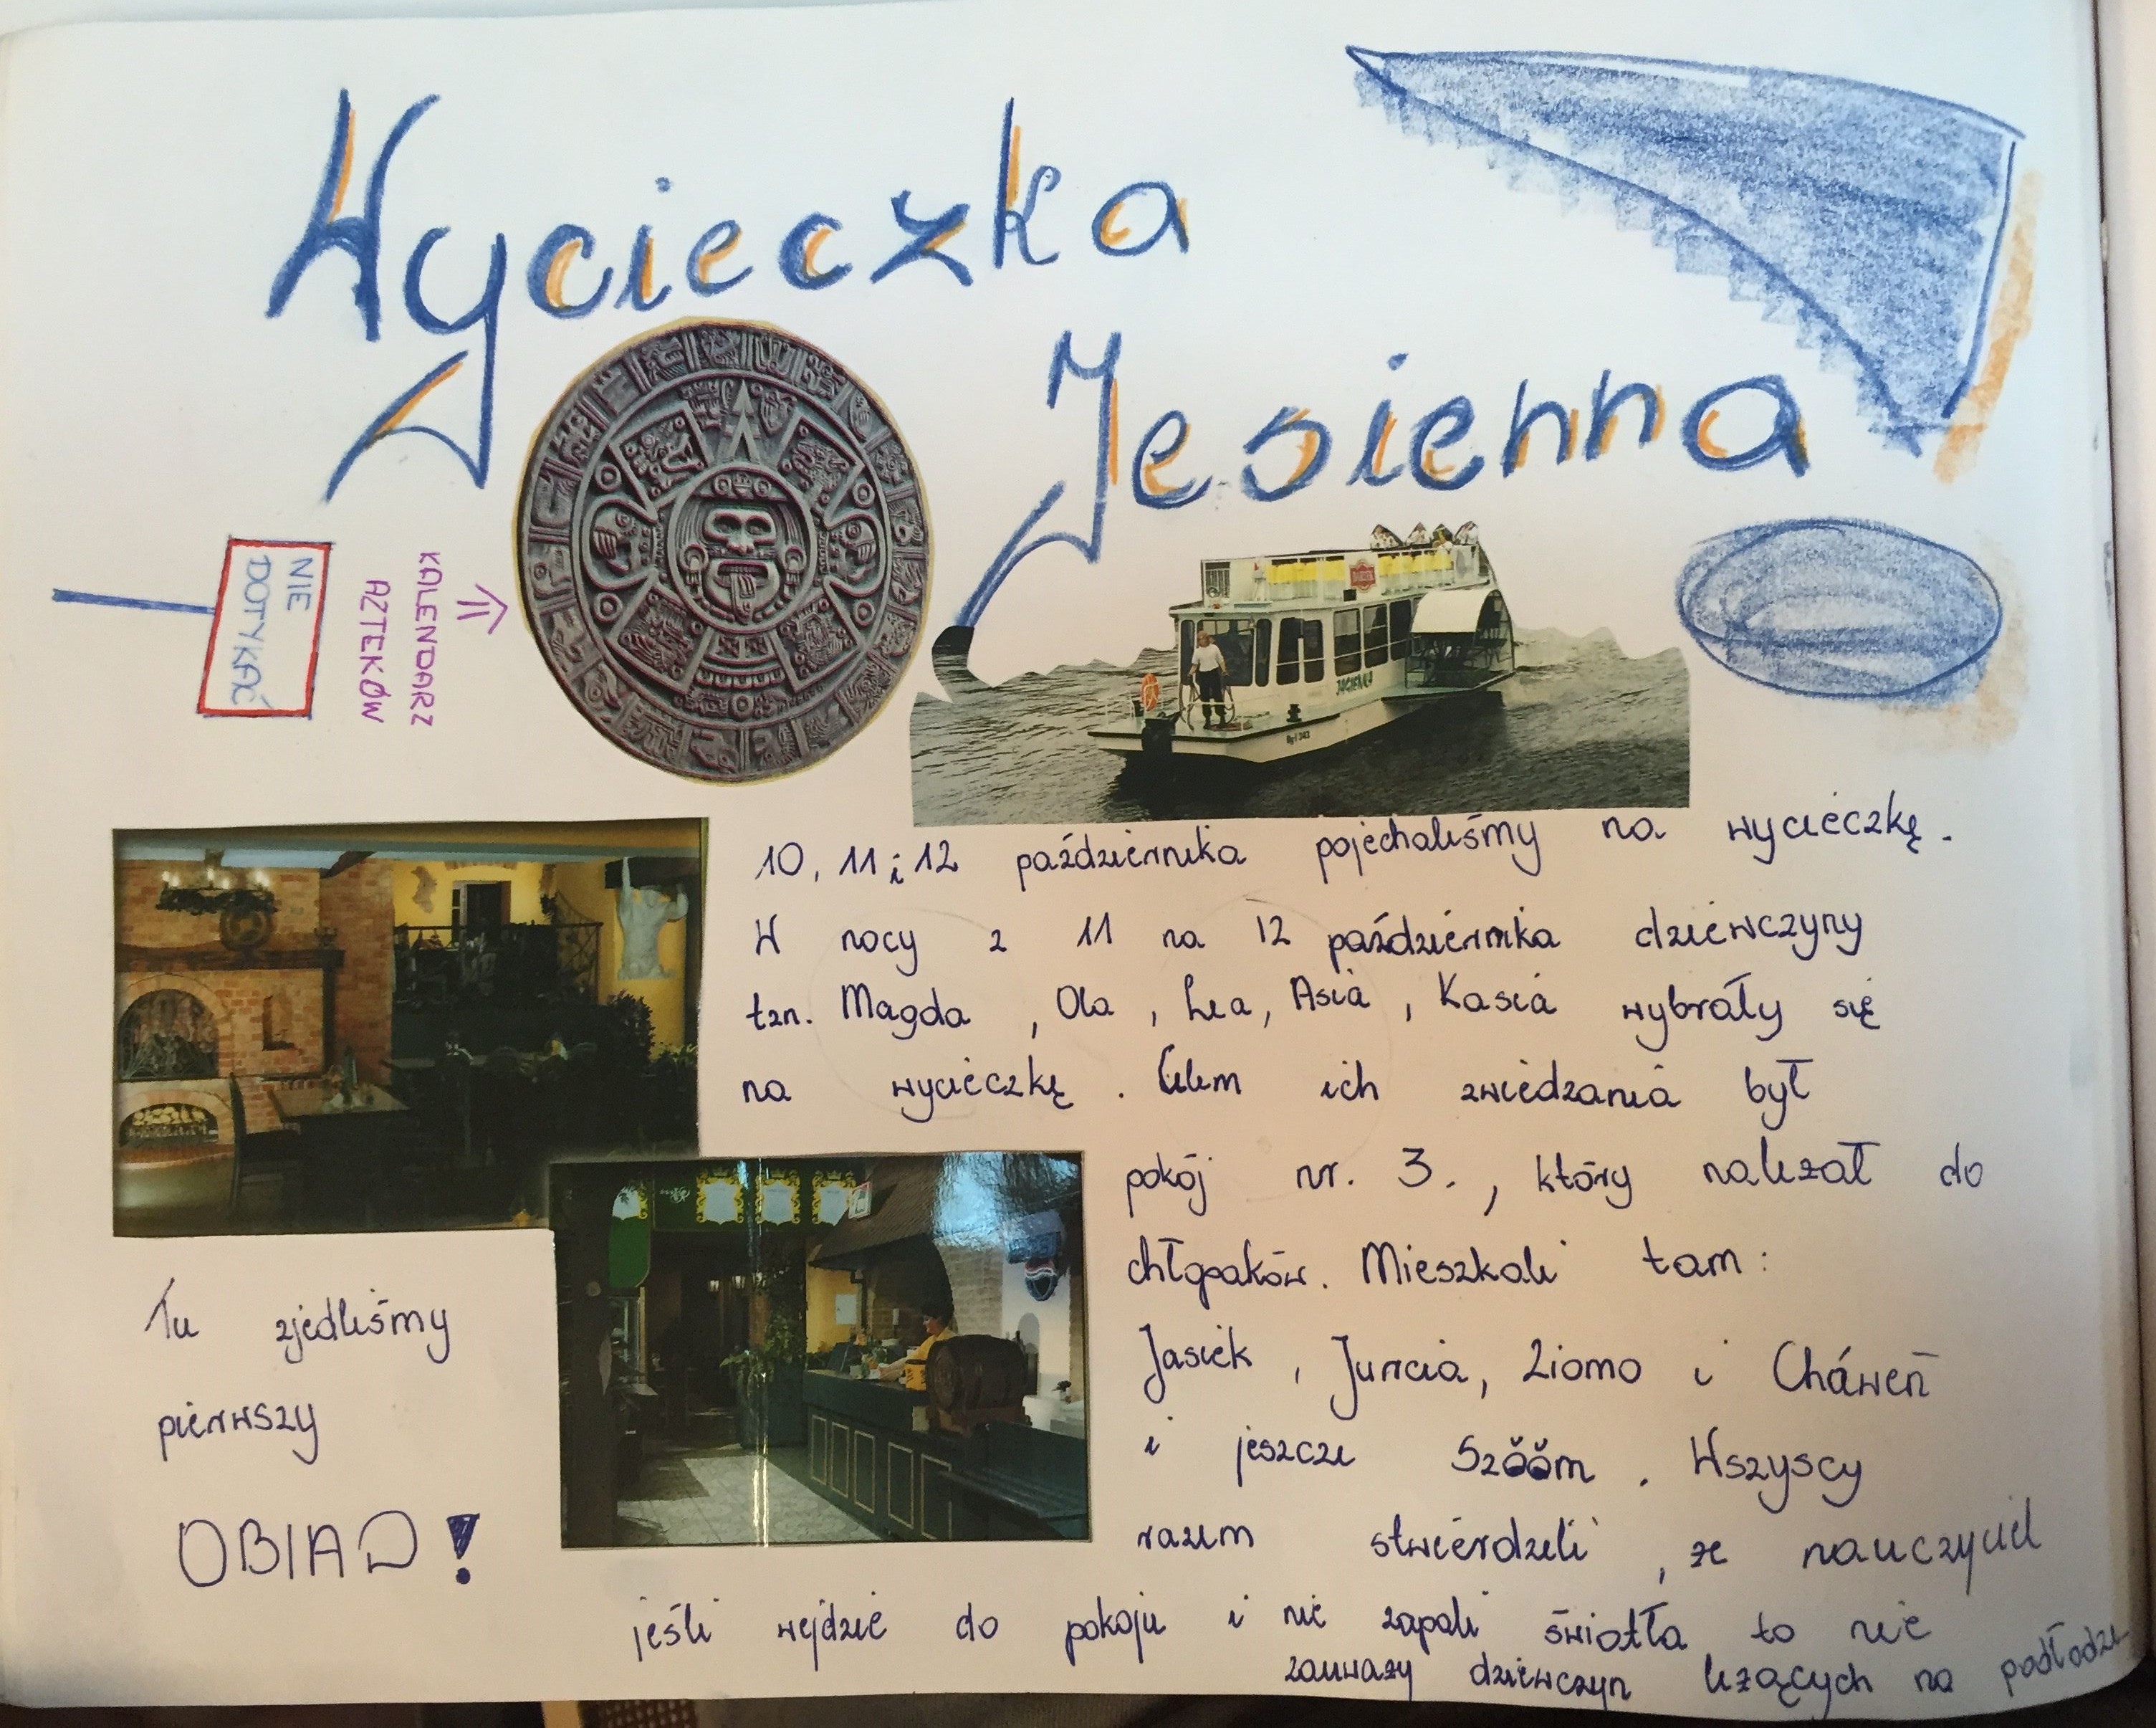 Wycieczka
Jesienna
NIE
DOTYKAĆ
KALENDARZ
AZTEKÓW
JAGIENKA
10, 11 i 12 października pojechaliśmy na wycieczkę.
W nocy z 11 na 12 października dziewczyny
tzn. Magda, Ola, Lea, Asia, Kasia wybrały się
na wycieczkę. Celem ich zwiedzania był
pokój nr. 3., który należał do
chłopaków. Mieszkali tam:
Jasiek, Jurcia, Ziomo i
i jeszcze Szŏŏm. Wszyscy
razem stwierdzili, że nauczyciel
jeśli wejdzie do pokoju i nie zapali światła to nie
zauważy dziewczyn leżących na podłodze
Tu zjedliśmy
pierwszy
OBIAD!